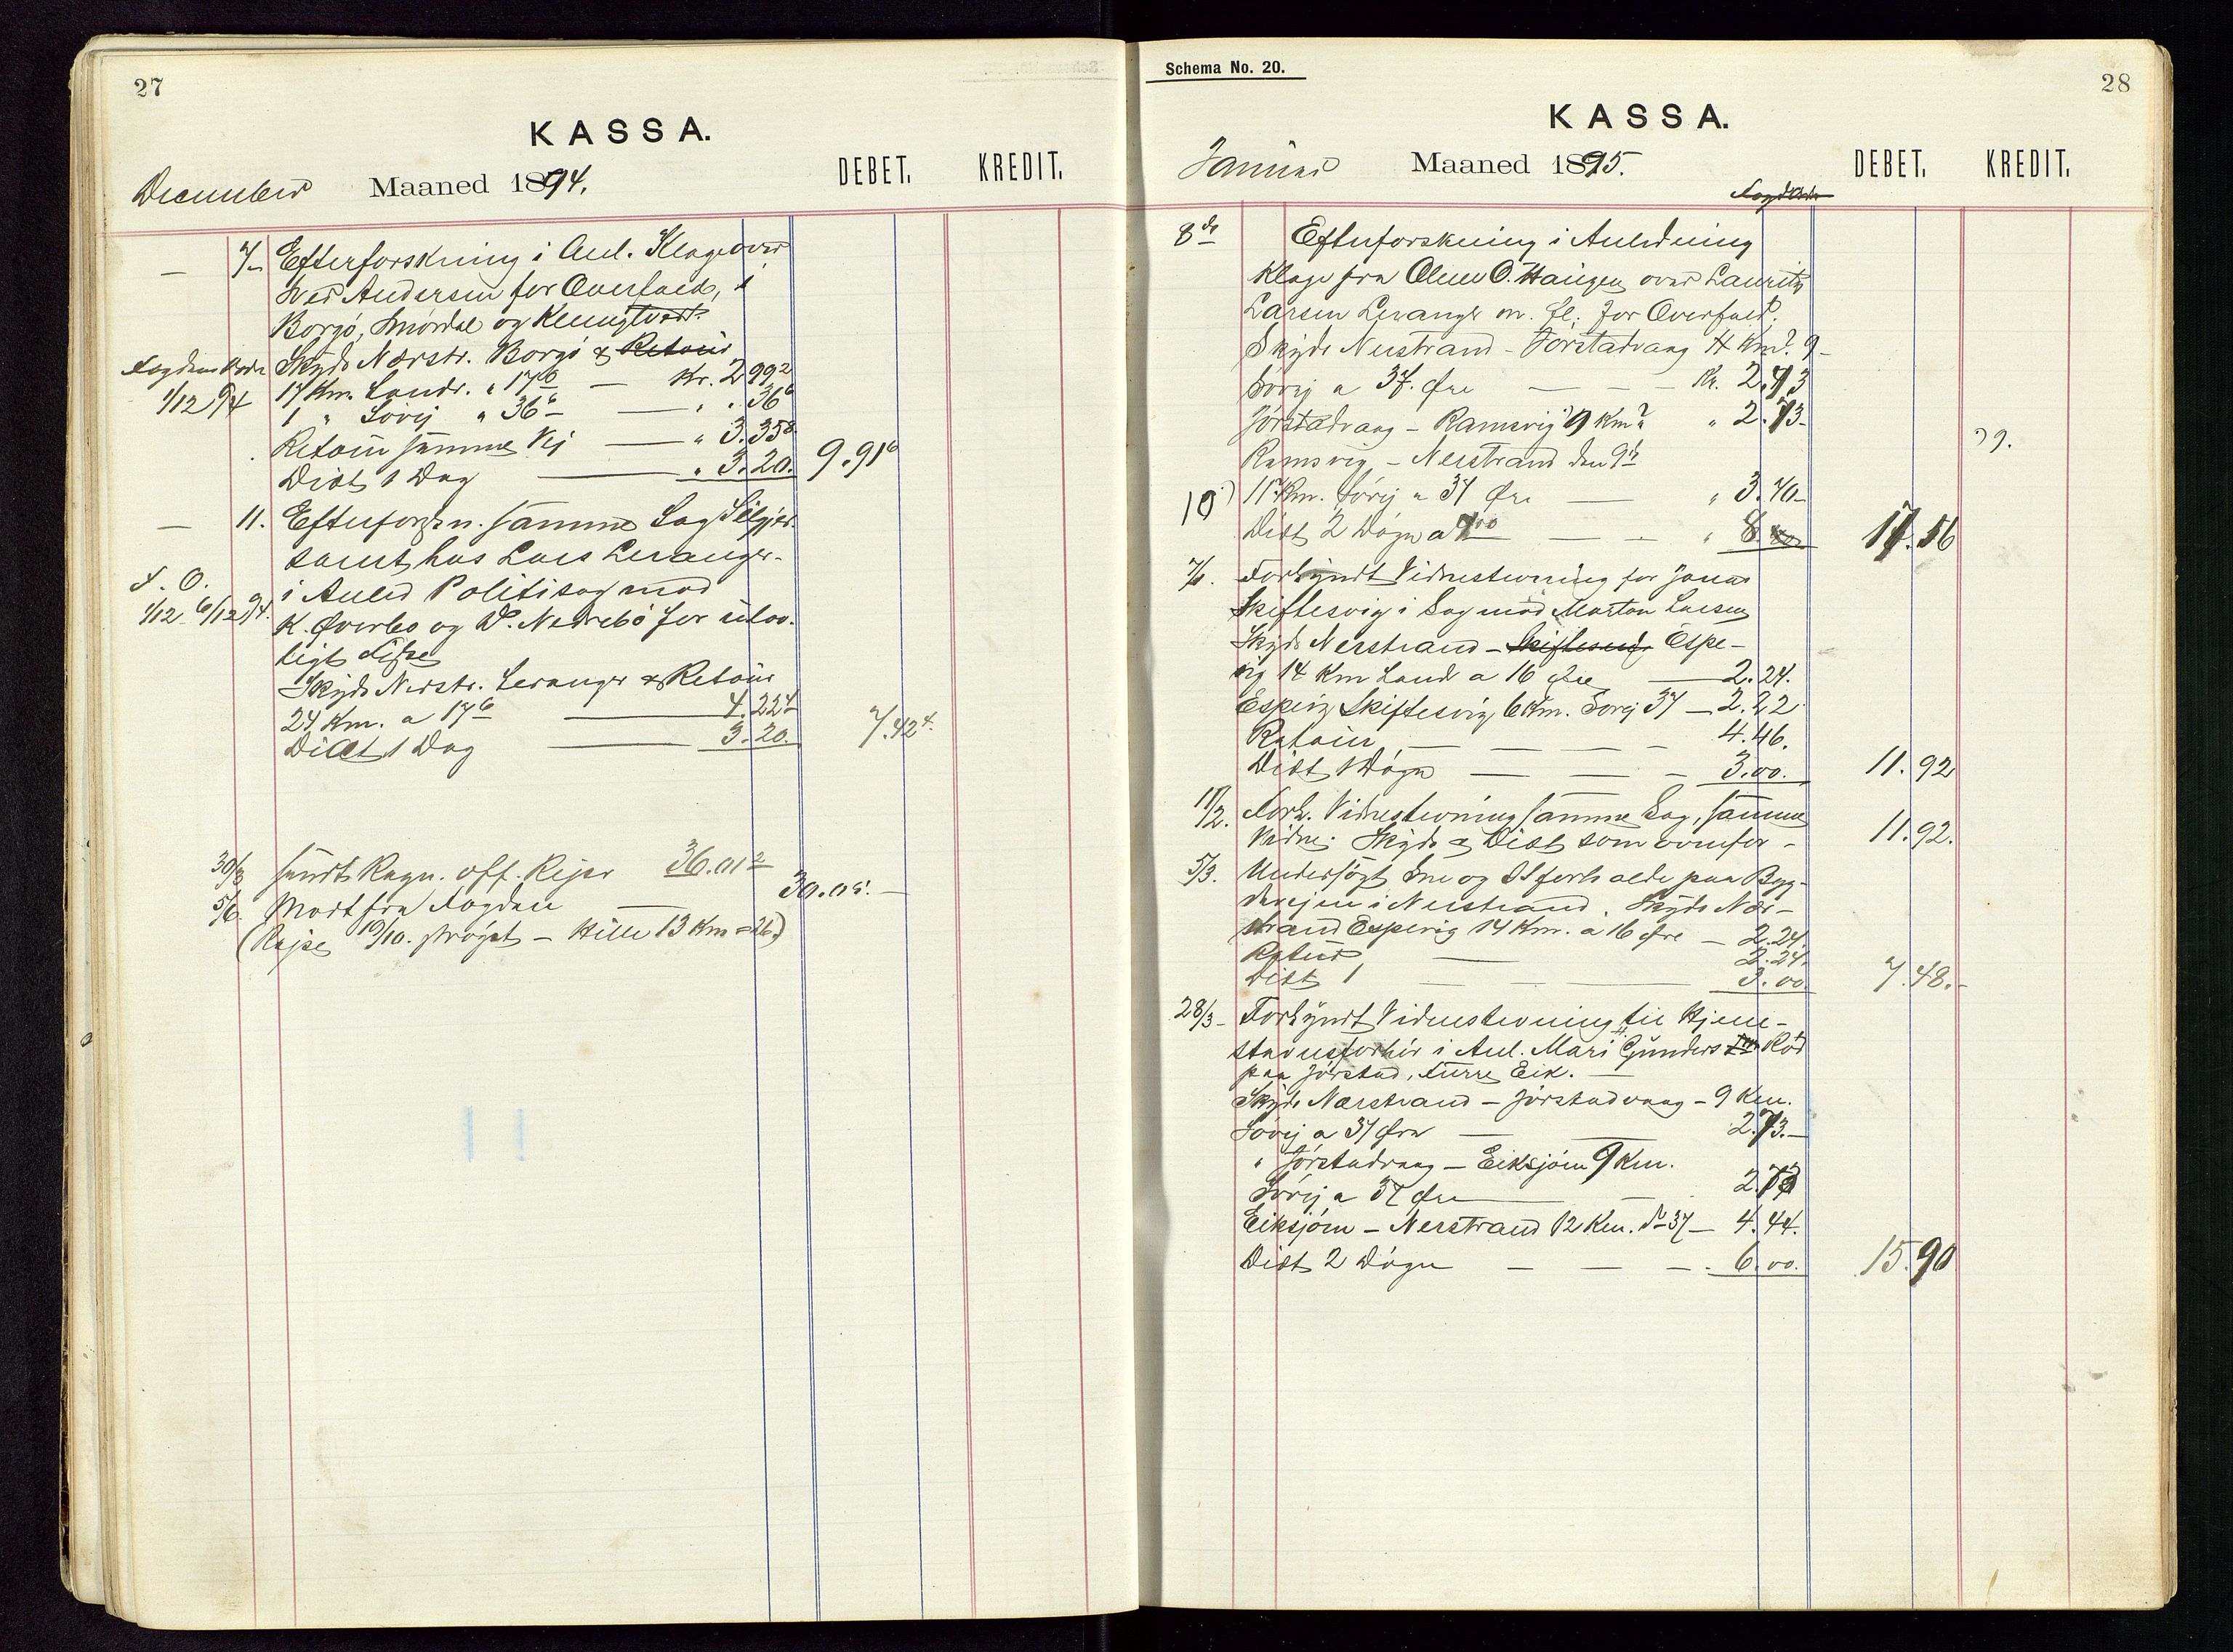 27
KASSA.
December Maaned 1894.
DEBET. KREDIT.
— 7- Efterforskning i Anl. Klage over
Andersen for Overfald, i
Borgö, Smördal og
Skyds Nerstr. Borgö & Retour
Fogdens Ordre 1/12 94
17 Km. Landv. a 17⁶ — Kr. 2.99²
1 " Sövej " 36⁶ — " . 36⁶
Retour samme Vej — " 3.35⁸
Diæt 1 Dag — " 3.20. 9.91⁶
— 11. Efterforskn. samme Sag
samt hos Lars Leranger-
F. O.
1/12 6/12 94.
i Anled Politisag mod
K. Øverbö og D. Nedrebö for ulov-
ligt Fiske
Skyds Nerstr. Leranger & Retour
24 Km. a 17⁶ — 4.22⁴
Diæt 1 Dag — 3.20. 7.42⁴.
30/3 sendt Regn. off. Rejser 36.01²
5/6. Modt fra Fogden — 30.05.—
(Rejse 19/10. strøget — Hille 13 Km = 26)
Schema No. 20.
28
KASSA.
Januar Maaned 1895.
DEBET. KREDIT.
8de Efterforskning i Anledning
Klage fra O. Haugen over Lauritz
Larsen Leranger m. fl. for Overfald.
Skyds Nerstrand — Jörstadvaag 9-
Sövej a 37. Øre — — — Kr. 2.73
Jörstadvaag — Ramsvig 9 Km " 2.73-
Ramsvig — Nerstrand den 9de
9.
10) Km. Sövej a 37 Øre — " 3.70-
Diæt 2 Dögn a — — " 8. 17.56
7/1. Forkyndt Vidnestevning for Jonas
Skiftesvig i Sag mod Morton Larsen
Skyds Nerstrand — Skiftesvig Espe-
vig 14 Km Landv a 16 Øre — 2.24.
Espevig Skiftesvig 6 Km. Sövej 37 — 2.22
Retour — — — — 4.46.
Diæt 1 Dögn — — — 3.00. 11.92
11/2. Fork. Vidnestevning samme Sag, samme
Vidne. Skyds & Diæt som ovenfor - 11.92.
5/3. Undersögt Sne og Isforholde paa Byg-
devejen i Nerstrand. Skyds Ner-
strand Espevig 14 Km. a 16 Øre — 2.24.
Retur — 2.24.
Diæt 1 — — — 3.00 7.48.-
28/3- Forkyndt Vidnestevning til Hjem-
stavnsforhör i Anl. Mari Gunders Röd
paa Jörstad, Furre, Eik. —
Skyds Nærstrand — Jörstadvaag — 9 Km.
Sövej a 37 Øre — — 2.73.—
" Jörstadvaag — Eiksjöen 9 Km.
Sövej a 37 Øre — — 2.73
Eiksjöen — Nerstrand 12 Km. do 37 — 4.44.
Diæt 2 Dögn — — — 6.00. 15.90